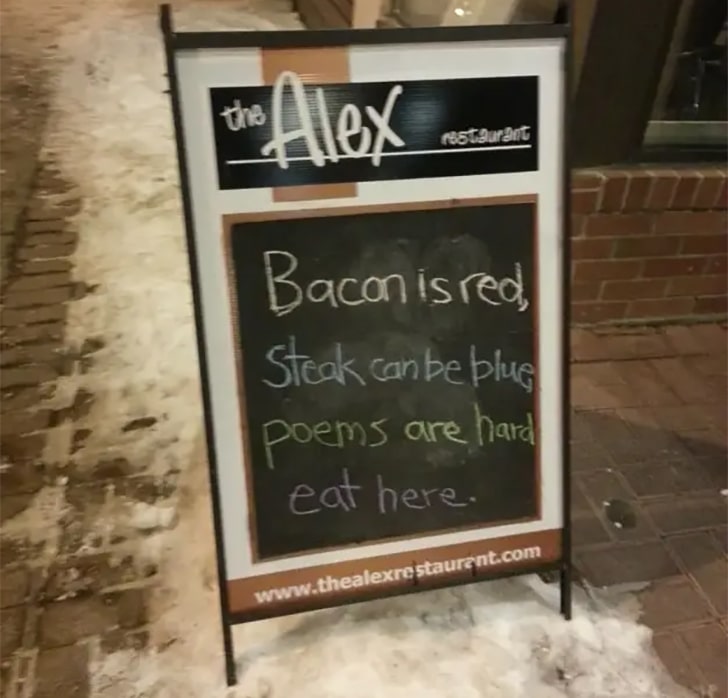 the Alex restaurant
Bacon is red,
Steak can be blue,
poems are hard
eat here.
www.thealexrestaurant.com